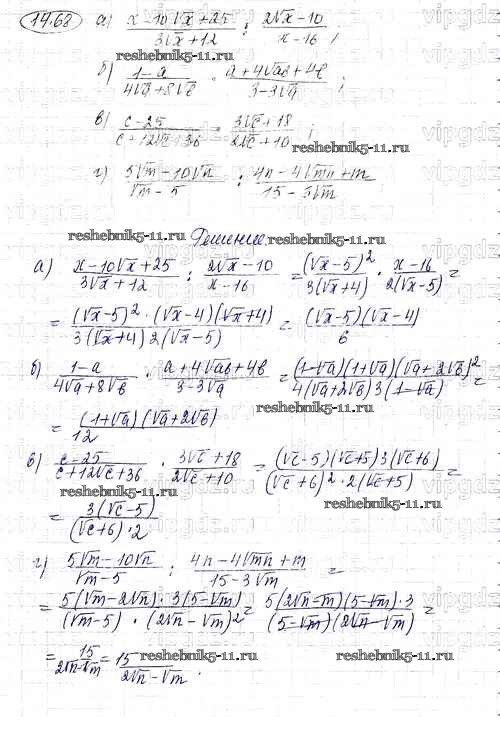 14.62 а) x-10√x+25 / 3√x+12 : 2√x-10 / x-16 ;
reshebnik5-11.ru
б) 1-a / 4√a+8√b · a+4√ab+4b / 3-3√a ;
в) c-25 / c+12√c+36 · 3√c+18 / 2√c+10 ;
reshebnik5-11.ru
г) 5√m-10√n / √m-5 : 4n-4√mn+m / 15-3√m
Решение
reshebnik5-11.ru
а) x-10√x+25 / 3√x+12 : 2√x-10 / x-16 = (√x-5)² / 3(√x+4) · x-16 / 2(√x-5) =
= (√x-5)² · (√x-4)(√x+4) / 3(√x+4) 2(√x-5) = (√x-5)(√x-4) / 6
reshebnik5-11.ru
б) 1-a / 4√a+8√b · a+4√ab+4b / 3-3√a = (1-√a)(1+√a)(√a+2√b)² / 4(√a+2√b)3(1-√a) =
= (1+√a)(√a+2√b) / 12
reshebnik5-11.ru
в) c-25 / c+12√c+36 · 3√c+18 / 2√c+10 = (√c-5)(√c+5)3(√c+6) / (√c+6)²·2(√c+5) =
reshebnik5-11.ru
= 3(√c-5) / (√c+6)·2
reshebnik5-11.ru
г) 5√m-10√n / √m-5 : 4n-4√mn+m / 15-3√m =
= 5(√m-2√n)·3(5-√m) / (√m-5)·(2√n-√m)² = 5(2√n-√m)(5-√m)·3 / (5-√m)(2√n-√m) =
= 15 / 2√n-√m = 15 / 2√n-√m .
reshebnik5-11.ru reshebnik5-11.ru